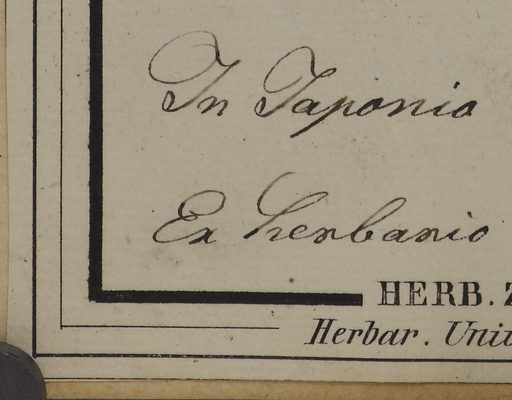 In Japonia
Ex herbario
HERB.
Herbar.